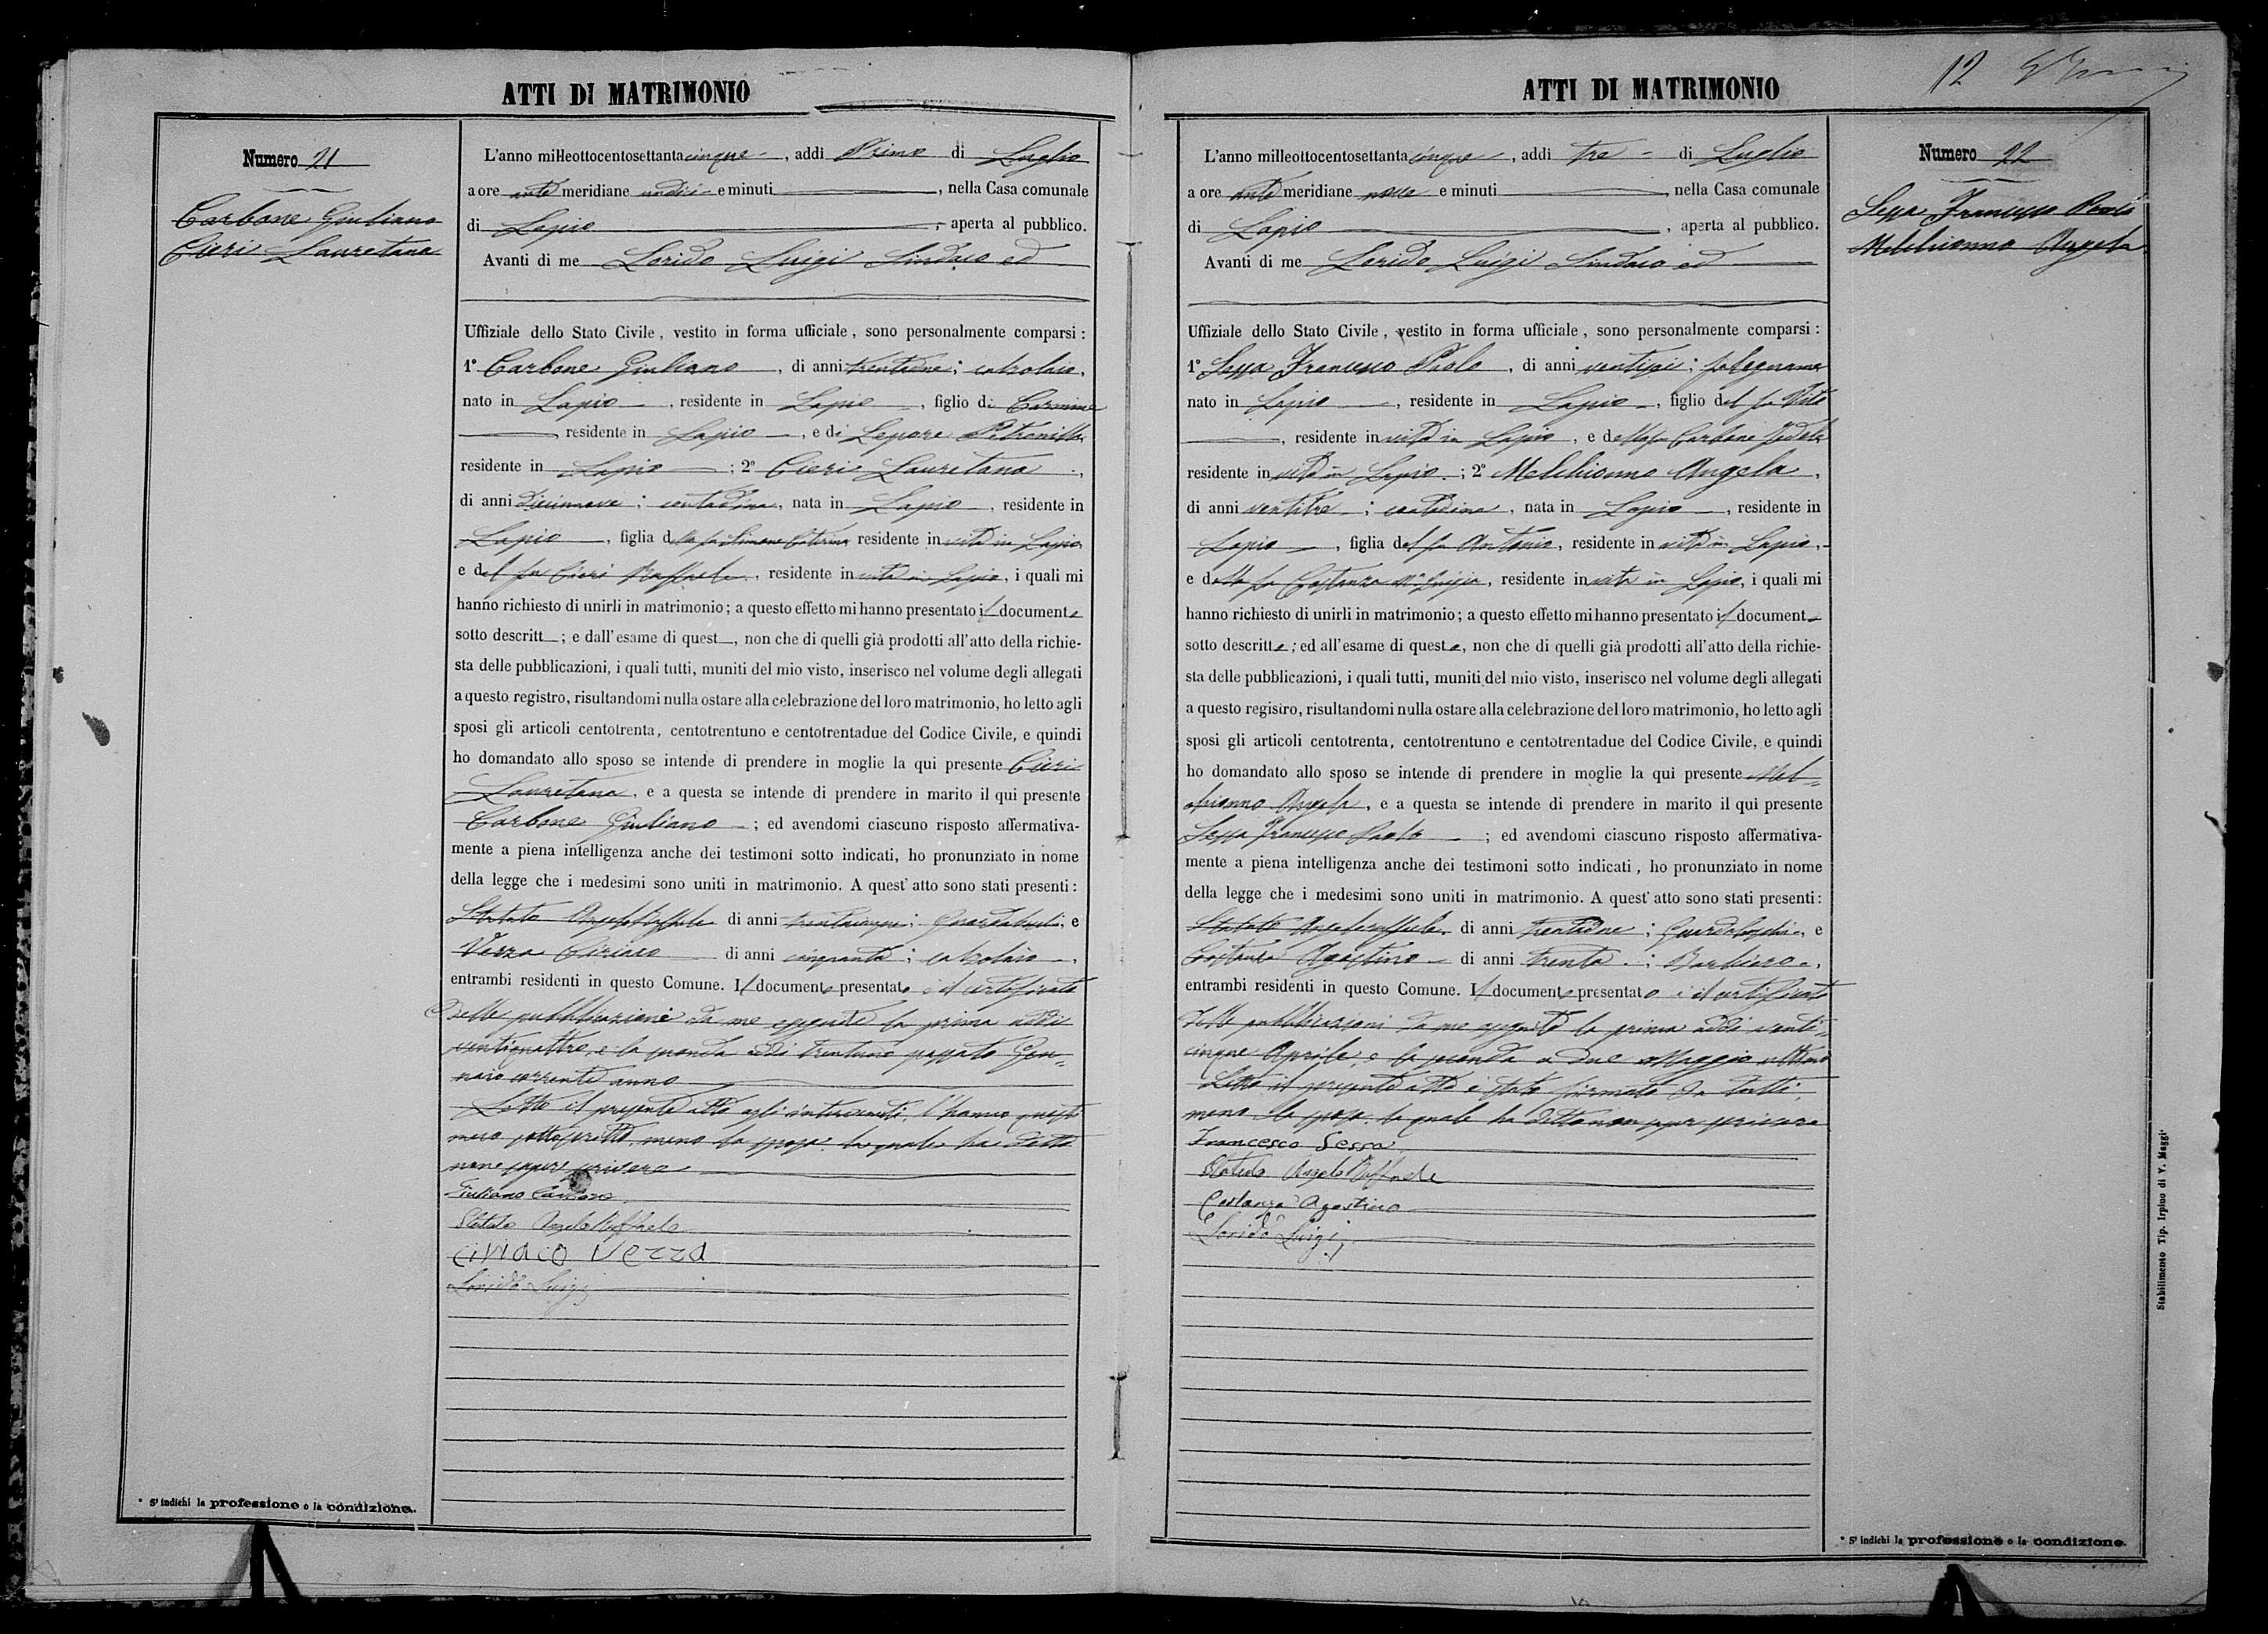 ATTI DI MATRIMONIO
Numero 21
Carbone Giuliano
Cieri Lauretana
L'anno milleottocentosettantacinque, addì Primo di Luglio
a ore anti meridiane undici e minuti, nella Casa comunale
di Lapio, aperta al pubblico.
Avanti di me Lorido Luigi Sindaco ed
Uffiziale dello Stato Civile, vestito in forma ufficiale, sono personalmente comparsi:
1° Carbone Giuliano, di anni; calzolaio,
nato in Lapio, residente in Lapio, figlio di Carmine
residente in Lapio, e di Lepore Petronilla
residente in Lapio; 2° Cieri Lauretana,
di anni diciannove; contadina, nata in Lapio, residente in
Lapio, figlia della fu Simone Caterina residente in vita in Lapio
e del fu Cieri Raffaele, residente in vita in Lapio, i quali mi
hanno richiesto di unirli in matrimonio; a questo effetto mi hanno presentato il documento
sotto descritt; e dall'esame di quest, non che di quelli già prodotti all'atto della richie-
sta delle pubblicazioni, i quali tutti, muniti del mio visto, inserisco nel volume degli allegati
a questo registro, risultandomi nulla ostare alla celebrazione del loro matrimonio, ho letto agli
sposi gli articoli centotrenta, centotrentuno e centotrentadue del Codice Civile, e quindi
ho domandato allo sposo se intende di prendere in moglie la qui presente Cieri
Lauretana, e a questa se intende di prendere in marito il qui presente
Carbone Giuliano; ed avendomi ciascuno risposto affermativa-
mente a piena intelligenza anche dei testimoni sotto indicati, ho pronunziato in nome
della legge che i medesimi sono uniti in matrimonio. A quest' atto sono stati presenti:
Angeloraffaele di anni trentacinque; Guardaboschi e
Vezza Ciriaco di anni cinquanta; calzolaio,
entrambi residenti in questo Comune. Il documento presentato è il certificato
delle pubblicazioni da me eseguite la prima addì
ventiquattro, e la seconda addì trentuno passato Gen=
naio corrente anno
Letto il presente atto agli intervenuti, l'hanno questi
meco sottoscritto, meno la sposa, la quale ha detto
non sapere scrivere
Giuliano Carbone
Angelo Raffaele
Ciriaco Vezza
Lorido Luigi
* S' indichi la professione o la condizione.
ATTI DI MATRIMONIO
12
Numero 22
Sessa Francesco Paolo
Melchionno Angela
L'anno milleottocentosettantacinque, addì tre di Luglio
a ore anti meridiane nove e minuti, nella Casa comunale
di Lapio, aperta al pubblico.
Avanti di me Lorido Luigi Sindaco ed
Uffiziale dello Stato Civile, vestito in forma ufficiale, sono personalmente comparsi:
1° Sessa Francesco Paolo, di anni ventisei; falegname
nato in Lapio, residente in Lapio, figlio del fu Vito
, residente in vita in Lapio, e della fu Carbone Fedele
residente in vita in Lapio; 2° Melchionno Angela,
di anni ventitre; contadina, nata in Lapio, residente in
Lapio, figlia del fu Antonio, residente in vita in Lapio,
e della fu Costanza Ma Luigia, residente in vita in Lapio, i quali mi
hanno richiesto di unirli in matrimonio; a questo effetto mi hanno presentato il documento
sotto descritto; ed all'esame di questo, non che di quelli già prodotti all'atto della richie-
sta delle pubblicazioni, i quali tutti, muniti del mio visto, inserisco nel volume degli allegati
a questo registro, risultandomi nulla ostare alla celebrazione del loro matrimonio, ho letto agli
sposi gli articoli centotrenta, centotrentuno e centotrentadue del Codice Civile, e quindi
ho domandato allo sposo se intende di prendere in moglie la qui presente Mel=
chionno Angela, e a questa se intende di prendere in marito il qui presente
Sessa Francesco Paolo; ed avendomi ciascuno risposto affermativa-
mente a piena intelligenza anche dei testimoni sotto indicati, ho pronunziato in nome
della legge che i medesimi sono uniti in matrimonio. A quest' atto sono stati presenti:
Angeloraffaele di anni; Guardaboschi, e
Costanza Agostino di anni trenta; Barbiere,
entrambi residenti in questo Comune. Il documento presentato è il certificato
delle pubblicazioni da me eseguite la prima addì venti=
cinque Aprile, e la seconda a due Maggio ultimo
Letto il presente atto è stato firmato da tutti,
meno la sposa, la quale ha detto non saper scrivere
Francesco Sessa
Angelo Raffaele
Costanza Agostino
Lorido Luigi
* S' indichi la professione o la condizione.
Stabilimento Tip. Irpino di V. Maggi